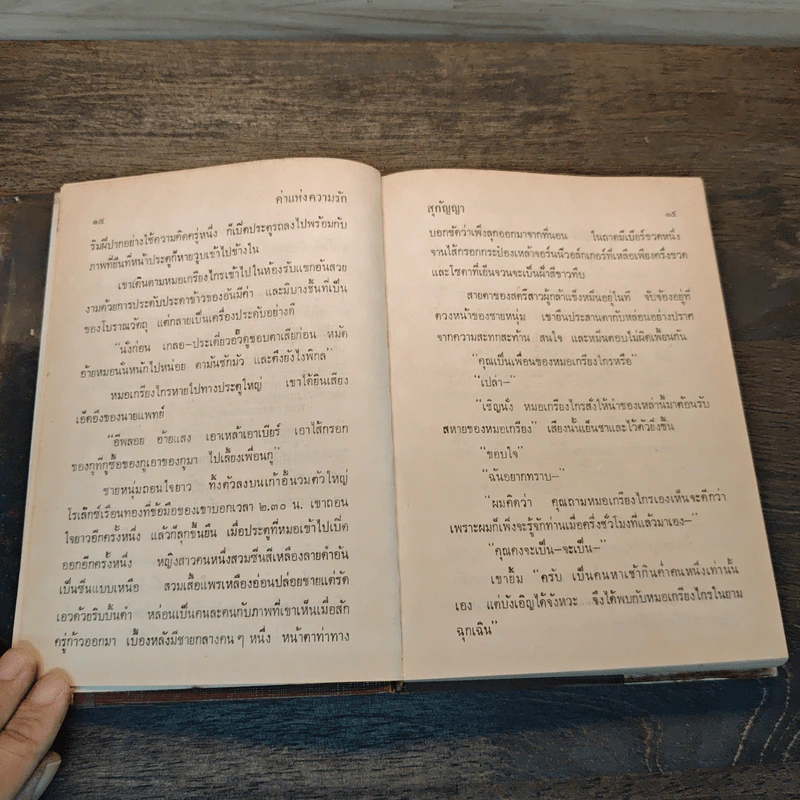 ๑๔
ค่าแห่งความรัก
ริมฝีปากอย่างใช้ความคิดครู่หนึ่ง ก็เบิดประตูรถลงไปพร้อมกับ
ภาพที่ยืนที่หน้าประตูก็หายวูบเข้าไปข้างใน
เขาเดินตามหมอเกรียงไกรเข้าไปในห้องรับแขกอันสวย
งามด้วยการประดับประดาข้าวของอันมีค่า และมีบางชิ้นที่เป็น
ของโบราณวัตถุ แต่กลายเป็นเครื่องประดับอย่างดี
“นั่งก่อน เกลอ–ประเดี๋ยวอั๊วดูขอบตาเสียก่อน หมัด
อ้ายหมอนั่นหนักไปหน่อย ตามันชักมัว และตึงยังไงพิกล”
หมอเกรียงไกรหายไปทางประตูใหญ่ เขาได้ยินเสียง
เอ็ดอึงของนายแพทย์
“อีพลอย อ้ายแสง เอาเหล้าเอาเบียร์ เอาไส้กรอก
ของกูที่กูซื้อของกูเอาของกูมา ไปเลี้ยงเพื่อนกู”
ชายหนุ่มถอนใจยาว ทิ้งตัวลงบนเก้าอี้นวมตัวใหญ่
โรเล็กซ์เรือนทองที่ข้อมือของเขาบอกเวลา ๒.๓๐ น. เขาถอน
ใจยาวอีกครั้งหนึ่ง แล้วก็ลุกขึ้นยืน เมื่อประตูที่หมอเข้าไปเปิด
ออกอีกครั้งหนึ่ง หญิงสาวคนหนึ่งสวมซิ่นสีเหลืองลายดำอัน
เป็นซิ่นแบบเหนือ สวมเสื้อแพรเหลืองอ่อนปล่อยชายแต่รัด
เอวด้วยริบบิ้นดำ หล่อนเป็นคนละคนกับภาพที่เขาเห็นเมื่อสัก
ครู่ก้าวออกมา เบื้องหลังมีชายกลางคน ๆ หนึ่ง หน้าตาท่าทาง
สุกัญญา
๑๕
บอกชัดว่าเพิ่งลุกออกมาจากที่นอน ในถาดมีเบียร์ขวดหนึ่ง
จานไส้กรอกกระป๋องเหล้าจอร์นนีวอล์กเกอร์ที่เหลือเพียงครึ่งขวด
และโซดาที่เย็นจวนจะเป็นฝ้าสีขาวทึบ
สายตาของสตรีสาวผู้กล้าแข็งหมึ่นอยู่ในที จับจ้องอยู่ที่
ดวงหน้าของชายหนุ่ม เขายืนประสานตากับหล่อนอย่างปราศ
จากความสะทกสะท้าน สนใจ และหมึ่นตอบไม่ผิดเพี้ยนกัน
“คุณเป็นเพื่อนของหมอเกรียงไกรหรือ”
“เปล่า–”
“เชิญนั่ง หมอเกรียงไกรสั่งให้นำของเหล่านี้มาต้อนรับ
สหายของหมอเกรียง” เสียงนั้นเย็นชาและไว้ตัวยิ่งขึ้น
“ขอบใจ”
“ฉันอยากทราบ–”
“ผมคิดว่า คุณถามหมอเกรียงไกรเองเห็นจะดีกว่า
เพราะผมก็เพิ่งจะรู้จักท่านเมื่อครึ่งชั่วโมงที่แล้วมาเอง–”
“คุณคงจะเป็น–จะเป็น–”
เขายิ้ม “ครับ เป็นคนหาเช้ากินค่ำคนหนึ่งเท่านั้น
เอง แต่บังเอิญได้จังหวะ จึงได้พบกับหมอเกรียงไกรในยาม
ฉุกเฉิน”